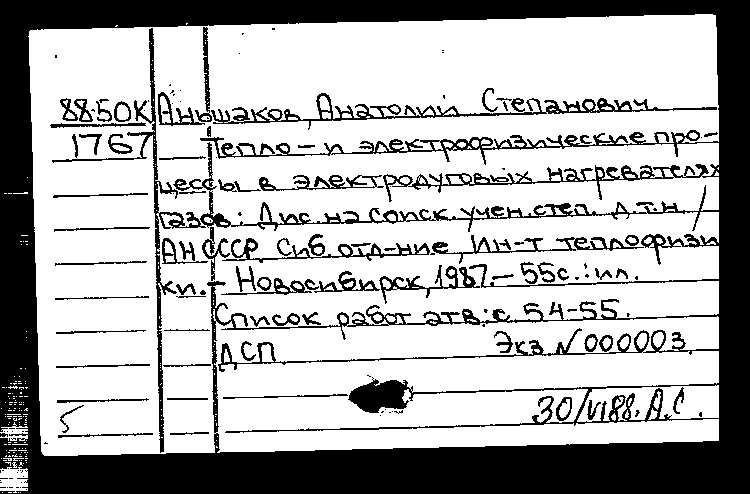 88.50К Аньшаков, Анатолий Степанович.
1767 Тепло- и электрофизические про-
цессы в электродуговых нагревателях
газов: Дис. на соиск. учен. степ. д.т.н /
АН СССР. Сиб. отд-ние, Ин-т теплофизи
ки. - Новосибирск, 1987. - 55с.: ил.
Список работ авт.: с. 54-55.
ДСП Экз N 000003.
5 30/VI88. А.С.